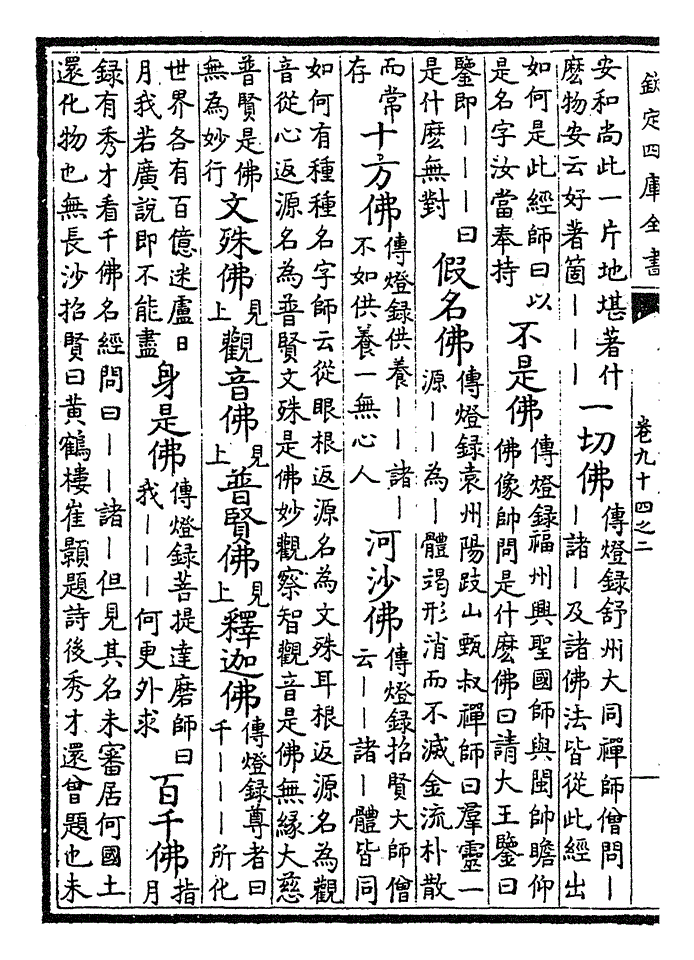 欽定四庫全書
卷九十四之二
安和尚此一片地堪著什
麽物安云好著箇｜｜｜
一切佛
傳燈錄舒州大同禪師僧問｜
｜諸｜及諸佛法皆從此經出
如何是此經師曰以
是名字汝當奉持
不是佛
傳燈錄福州興聖國師與閩帥瞻仰
佛像帥問是什麽佛曰請大王鑒曰
鑒即｜｜｜曰
是什麽無對
假名佛
傳燈錄袁州陽歧山甄叔禪師曰羣靈一
源｜｜為｜體竭形消而不滅金流朴散
而常
存
十方佛
傳燈錄供養｜｜｜諸｜
不如供養一無心人
河沙佛
傳燈錄招賢大師僧
云｜｜諸｜體皆同
如何有種種名字師云從眼根返源名為文殊耳根返源名為觀
音從心返源名為普賢文殊是佛妙觀察智觀音是佛無緣大慈
普賢是佛
無為妙行
文殊佛
見
上
觀音佛
見
上
普賢佛
見
上
釋迦佛
傳燈錄尊者曰
千｜｜｜所化
世界各有百億迷盧日
月我若廣說即不能盡
身是佛
傳燈錄菩提達磨師曰
我｜｜｜何更外求
百千佛
指
月
錄有秀才看千佛名經問曰｜｜諸｜但見其名未審居何國土
還化物也無長沙招賢曰黃鶴樓崔顥題詩後秀才還曾題也未